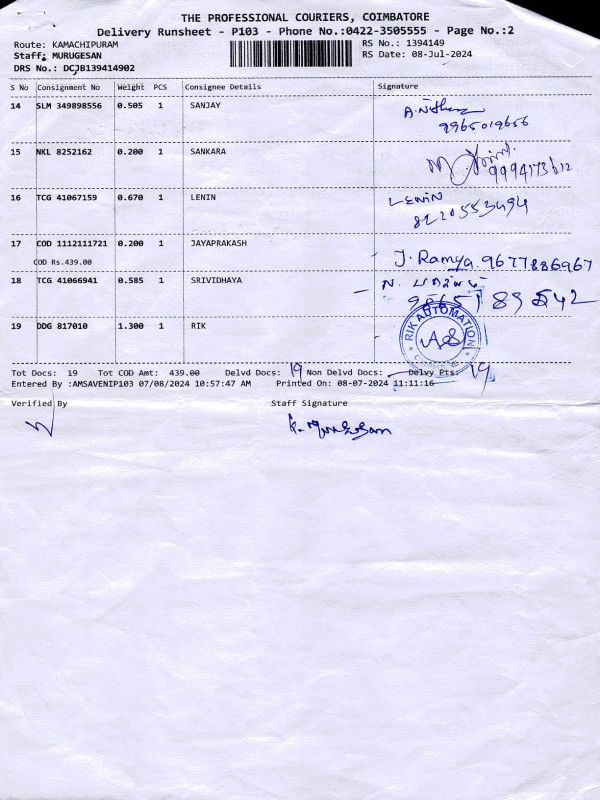 THE PROFESSIONAL COURIERS, COIMBATORE
Delivery Runsheet - P103 - Phone No.:0422-3505555 - Page No.:2
Route: KAMACHIPURAM RS No.: 1394149
Staff: MURUGESAN RS Date: 08-Jul-2024
DRS No.: DCJB139414902
S No Consignment No Weight PCS Consignee Details Signature
14 SLM 349898556 0.505 1 SANJAY
9965019656
15 NKL 8252162 0.200 1 SANKARA
9994173612
16 TCG 41067159 0.670 1 LENIN LENIN
8220553494
17 COD 1112111721 0.200 1 JAYAPRAKASH
COD Rs.439.00 J. Ramya. 9677886967
18 TCG 41066941 0.585 1 SRIVIDHAYA
19 DDG 817010 1.300 1 RIK RIK AUTOMATION
Tot Docs: 19 Tot COD Amt: 439.00 Delvd Docs: 19 Non Delvd Docs: Delvy Pts: 19
Entered By :AMSAVENIP103 07/08/2024 10:57:47 AM Printed On: 08-07-2024 11:11:16
Verified By Staff Signature